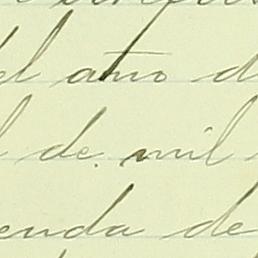 el año d
l de mil
enda de